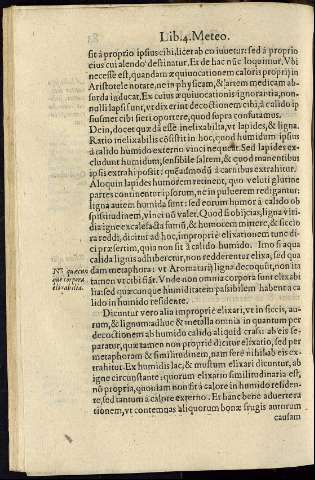 Lib. 4. Meteo.
sit à proprio ipsius cibi dicer ab eo iuuetur: sed à proprio
eius cui alendo destinatur. Et de hac nūc loquimur. Vbi
necesse est, quandam æquiuocationem caloris proprij in
Aristotele notare, ne in physicam, & artem medicam ab-
surda inducat. Ex cuius æquiuocationis ignorantia, non-
nulli lapsi sunt, vt dixerint decoctionem cibi, à calido ip
siusmet cibi fieri oportere, quod supra confutamus.
Dein, docet quædā esse inelixabilia, vt lapides, & ligna.
Ratio inelixabilis cōsistit in hoc, quod humidum ipsius
à calido humido externo vinci nequeat. Sed lapides ex-
cludunt humidum, sensibile saltem, & quod manentibus
ipsis extrahi possit: quēadmodū à carnibus extrahitur.
Alioquin lapides humorem retinent, quo veluti glutine
partes continentur ipsorum, ne in puluerem redigantur:
ligna autem humida sunt: sed eorum humor à calido ob
spissitudinem, vinci nō valet. Quod si obijcias, ligna viri-
dia igne excalefacta fumū, & humorem mittere, & siccio
ra reddi, dicitur ad hoc, impropriè elixationem tunc di-
ci præsertim, quia non fit à calido humido. Imo si aqua
calida lignis adhiberetur, non redderentur elixa, sed qua
dam metaphora: vt Aromatarij ligna decoquūt, non ita
tamen vt cibi fiāt. Vnde non omnia corpora sunt elixabi
lia: sed quæcunque humiditatem passibilem habent a ca
lido in humido residente.
quæcun
que corpora
elixabilia.
Dicuntur vero alia impropriè elixari, vt in succis, au-
rum, & lignum: adhuc & metalla omnia in quantum per
decoctionem ab humido calido aliquid crassi ab eis se-
paratur, quæ tamen non propriè dicitur elixatio, sed per
metaphoram & similitudinem, nam ferè nihil ab eis ex-
trahitur. Ex humidis lac, & mustum elixari dicuntur, ab
igne circunstante: quorum elixatio similitudinaria est,
nō propria, quoniam non fit à calore in humido residen-
te, sed tantum à calore externo. Et hanc bene aduertera
tionem, vt contemnas aliquorum bonæ frugis autorum
causam